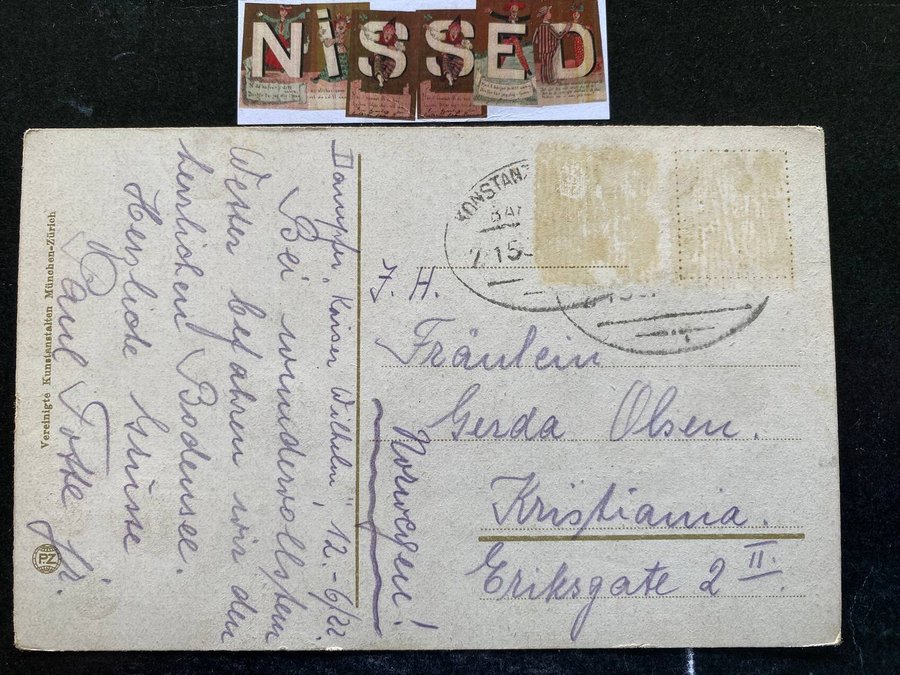 NISSED
Dampfer „Kaiser Wilhelm", 12.-6/22.
Bei wundervollstem
Wetter befahren wir den
herrlichen Bodensee.
Herzliche Grüsse
Paul
Jr.
Vereinigte Kunstanstalten München-Zürich
PZ
KONSTANZ
J. H.
Fräulein
Gerda Olsen.
Kristiania.
Eriksgate 2 II.
Norwegen!